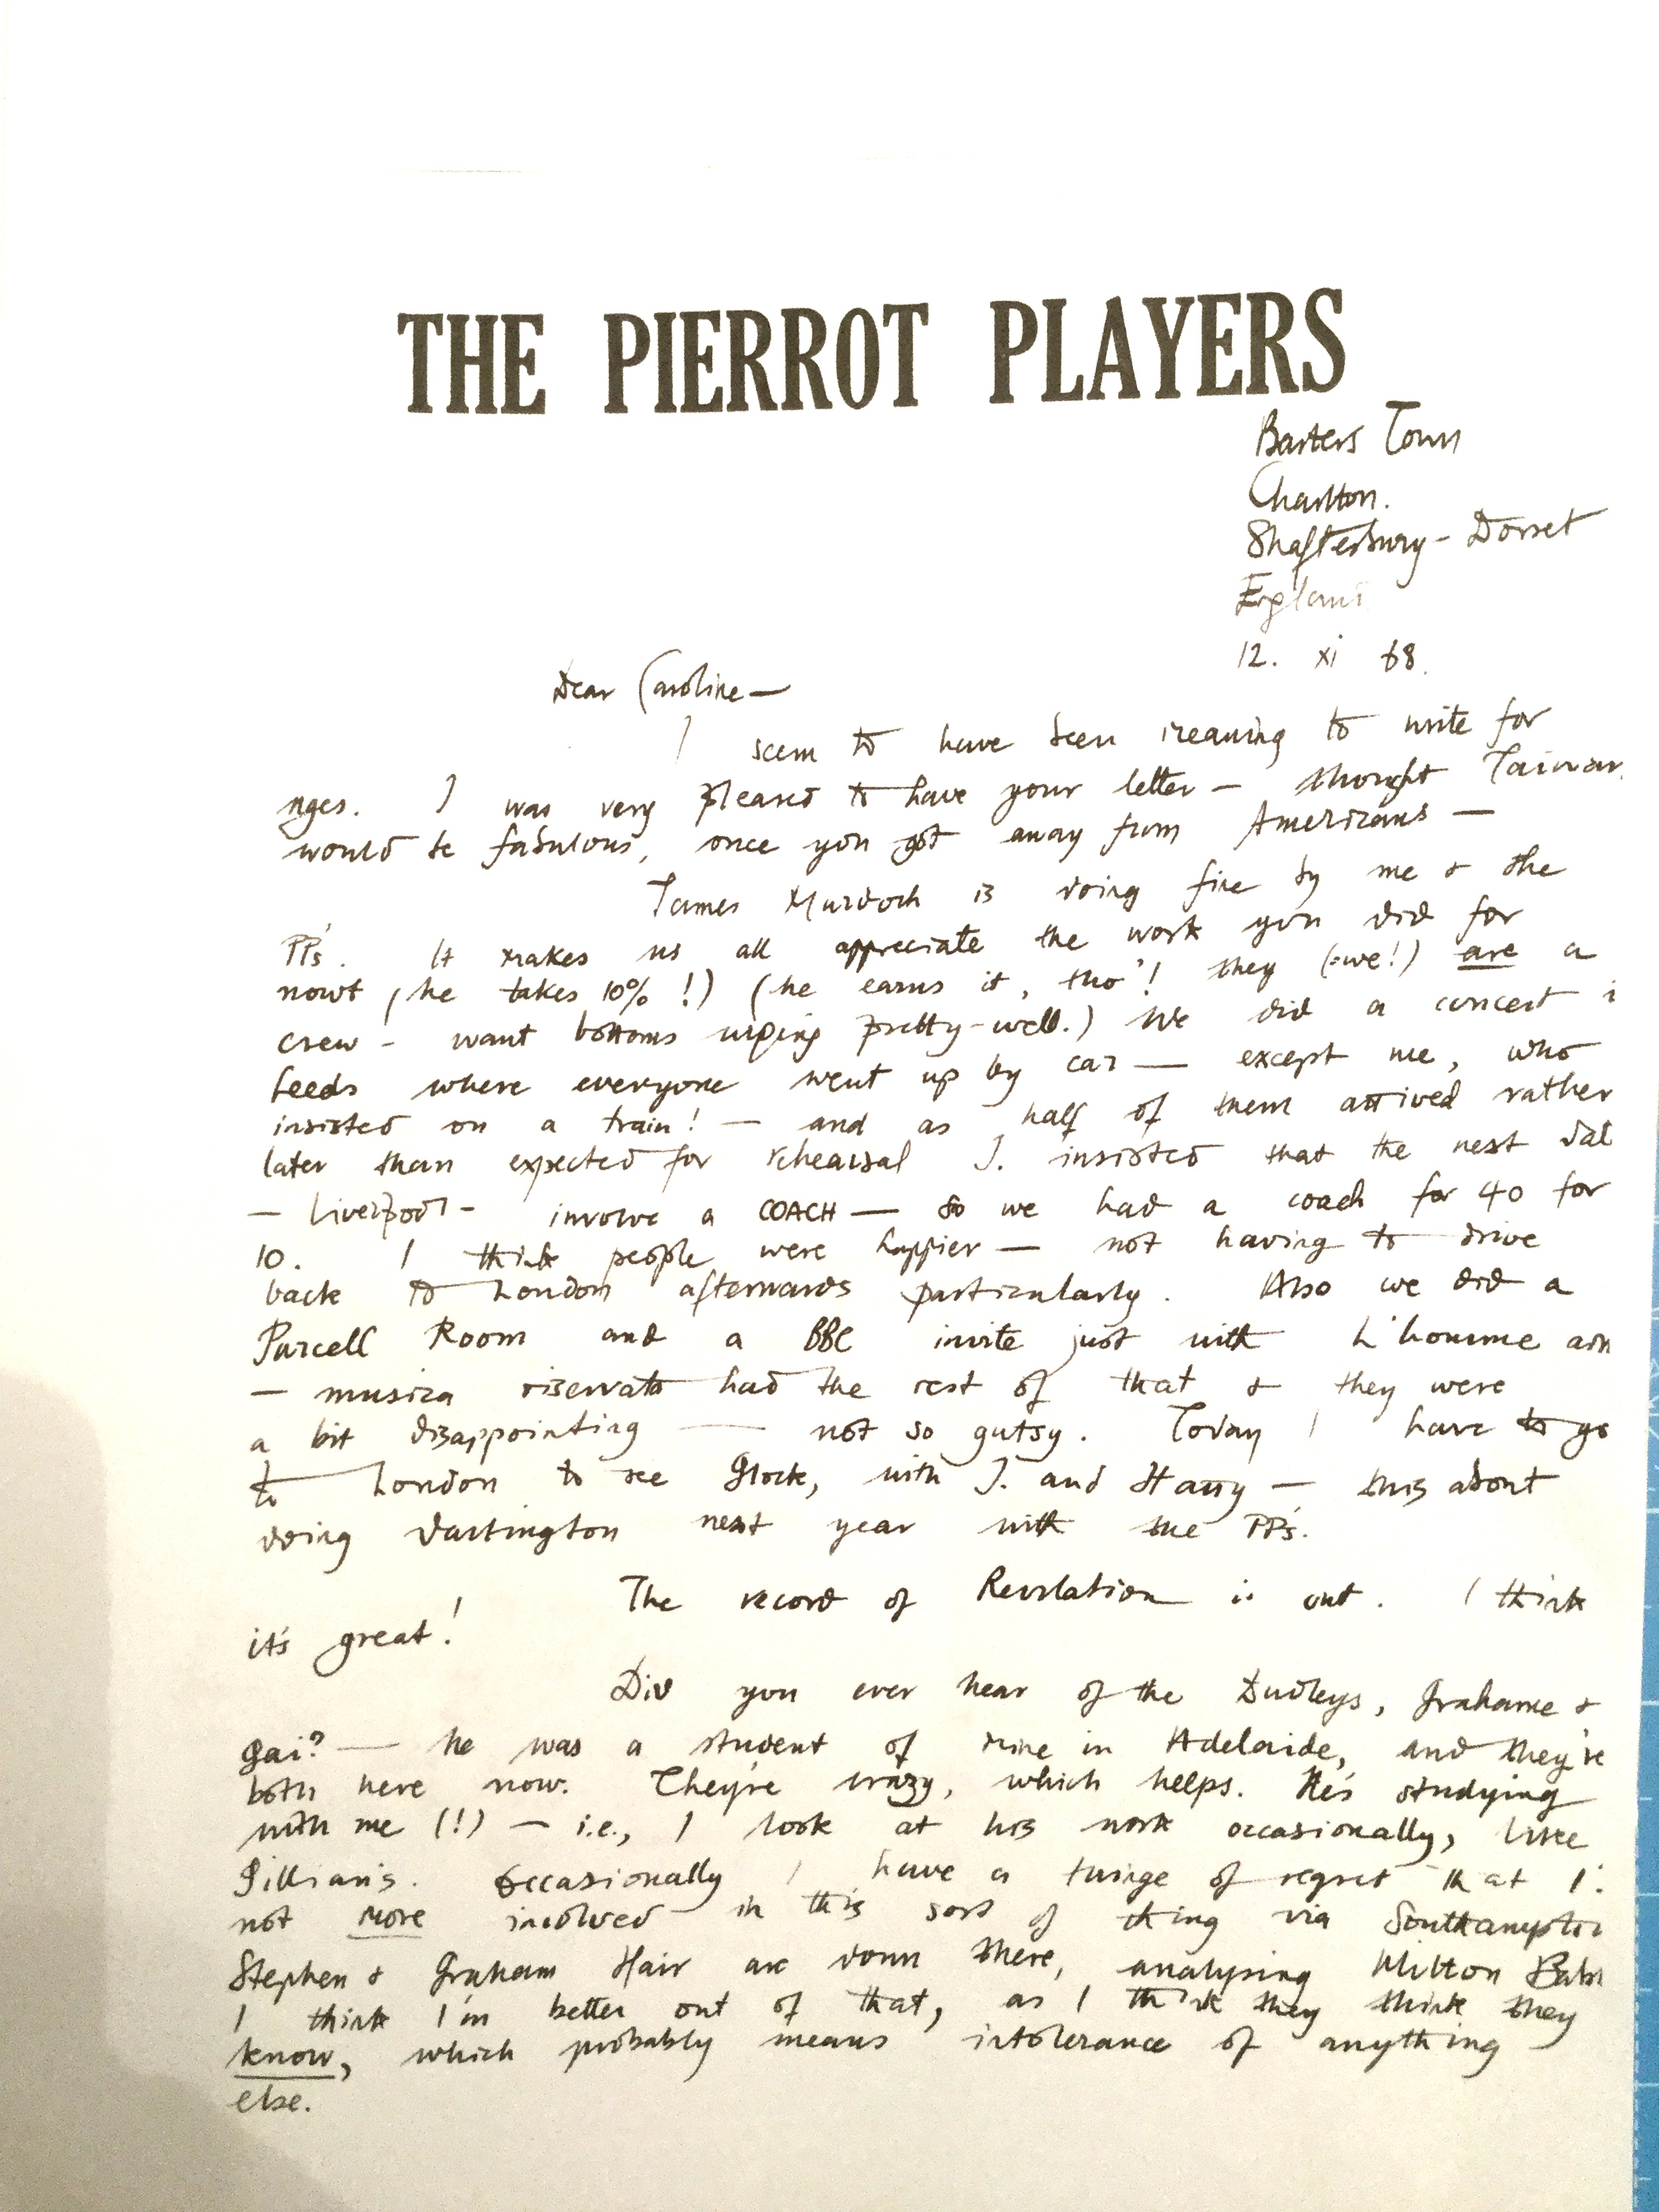 THE PIERROT PLAYERS
Barters Town
Charlton.
Shaftesbury - Dorset
England
12. xi 68.
Dear Caroline —
I seem to have been meaning to write for
ages. I was very pleased to have your letter — thought Taiwan
would be fabulous, once you got away from Americans —
James Murdoch is doing fine by me & the
PP's. It makes us all appreciate the work you did for
nowt (he takes 10% !) (he earns it, tho'! they (:we!) are a
crew - want bottoms wiping pretty-well.) We did a concert i
Leeds where everyone went up by car — except me, who
insisted on a train! — and as half of them arrived rather
later than expected for rehearsal J. insisted that the next dat
— Liverpool - involve a COACH — so we had a coach for 40 for
10. I think people were happier — not having to drive
back to London afterwards particularly. Also we did a
Purcell Room and a BBC invite just with L'homme arm
— musica riservata had the rest of that & they were
a bit disappointing — not so gutsy. Today I have to go
to London to see Glock, with J. and Harry — this about
doing Dartington next year with the PP's.
The record of Revelation is out. I think
it's great!
Did you ever hear of the Dudleys, Grahame &
Gai? — he was a student of mine in Adelaide, and they're
both here now. They're crazy, which helps. He's studying
with me (!) — i.e., I look at his work occasionally, like
Gillian's. Occasionally I have a twinge of regret that I'
not more involved in this sort of thing via Southampton
Stephen & Graham Hair are down there, analysing Milton Bab
I think I'm better out of that, as I think they think they
know, which probably means intolerance of anything
else.